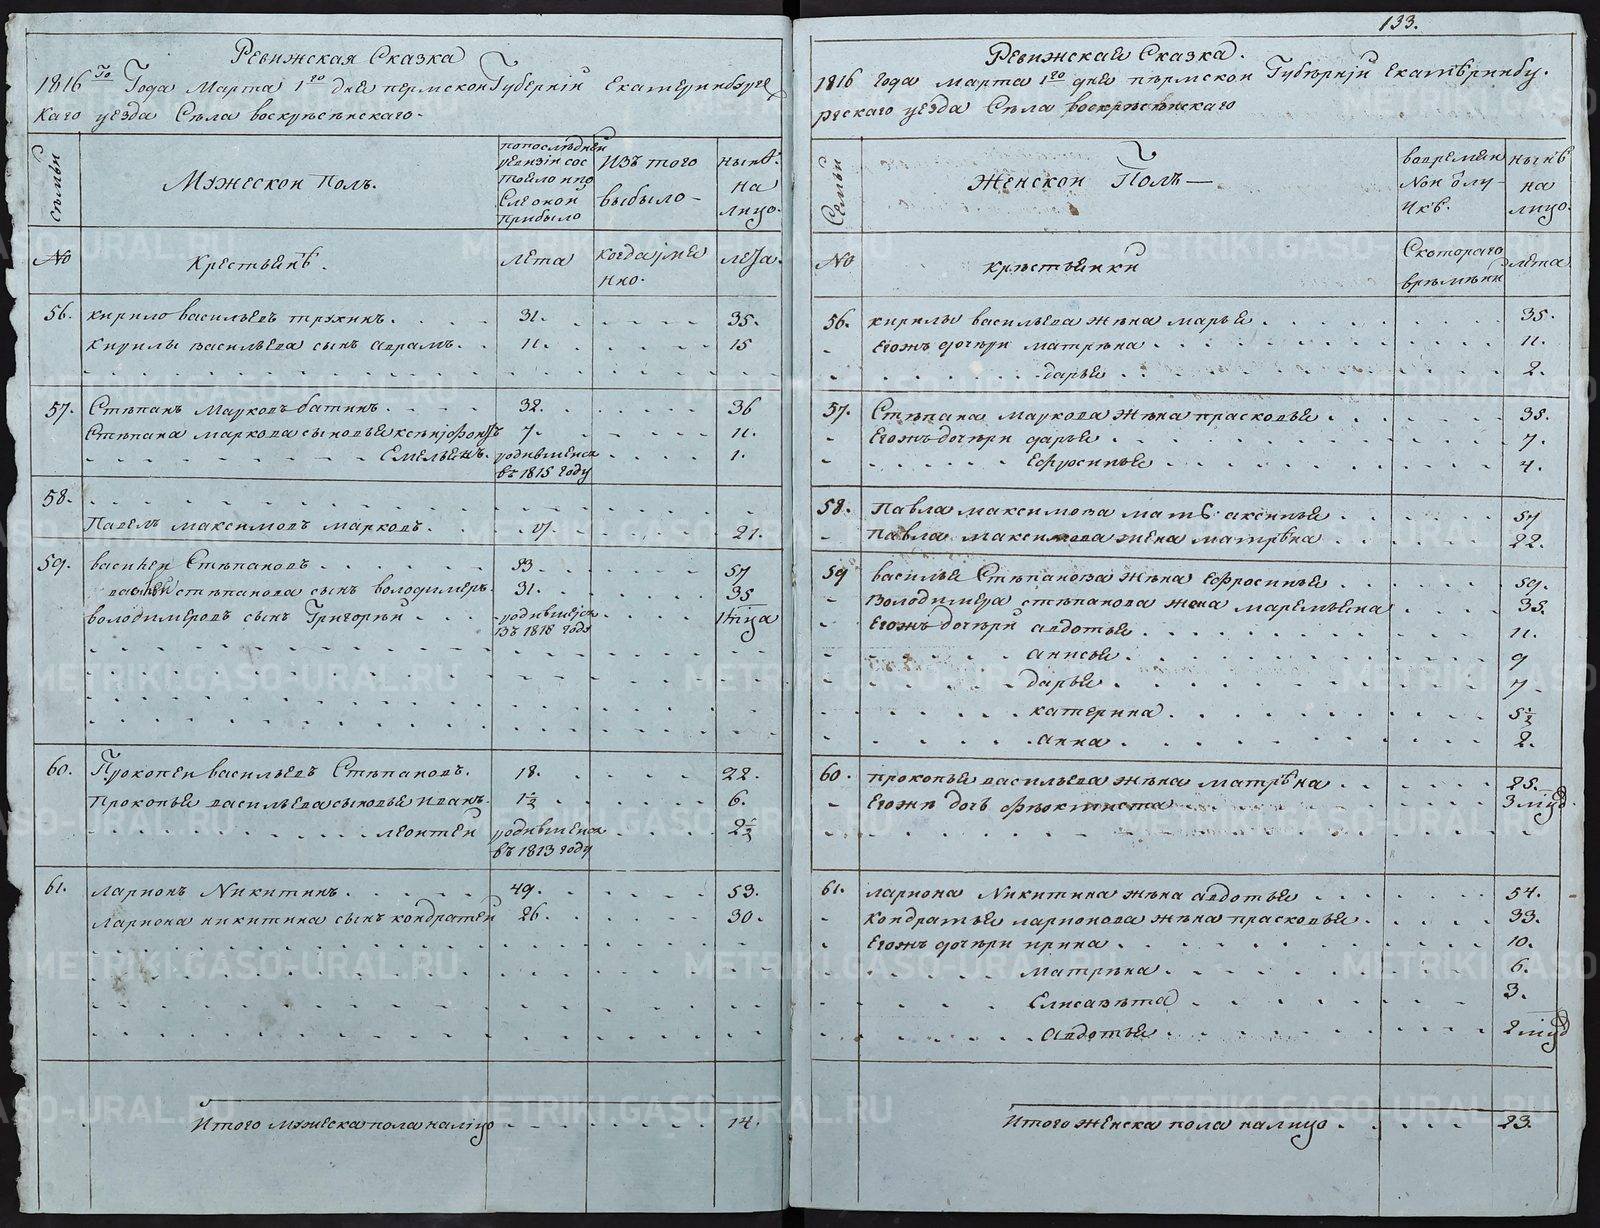 133.
Ревижская Сказка
1816 го Года Марта 1го дня пермской Губернiи Екатеринбурге
каго уезда Села воскресенскаго.
Семьи
Мужеской Полъ.
попоследней
ревизiи сос
тояло ипо
сле оной
прибыло
Изъ того
выбыло
ныне
на
лицо.
No
крестьяне.
лета
когда имя
нно.
лета.
56. кирило васильевъ трухинъ. 31. 35.
кирилы васильева сынъ аврамъ. 11. 15
57. Степанъ Марковъ батинъ. 32. 36
Степана маркова сыновья ксенофонтъ 7. 11.
Емельянъ. родившейся 1.
въ 1815 году
58.
Павелъ максимовъ марковъ. 17. 21.
59. василей Степановъ 53. 57
василья степанова сынъ володимеръ. 31. 35
володимеровъ сынъ Григорей родившейся
въ 1816 годе
60. Прокопей васильевъ Степановъ. 18. 22.
прокопья васильева сыновья иванъ. 1½ 6.
леонтей родившейся 2½
въ 1813 году
61. ларионъ Никитинъ. 49. 53.
лариона никитина сынъ кондратей 26. 30.
Итого мужеска пола налицо 14.
Ревижская Сказка.
1816 года марта 1го дня пермской Губернiи Екатеринбу.
ргскаго уезда Села воскресенскаго
Семьи
Женской Полъ
вовремян
ной отлу-
чке.
ныне
на
лицо.
No
крестьянки
Скотораго
времяни
лета
56. кирилы васильева жена марья 35.
Егожъ дочери матрена 11.
дарья 2.
57. Степана маркова жена прасковья 35.
Егожъ дочери дарья 7.
Ефросинья 4.
58. Павла максимова мать аксинья 57
Павла максимова жена матрена 22.
59 василья Степанова жена Ефросинья 59.
Володимера степанова жена маремьяна 35.
Егожъ дочери авдотья 11.
анисья 9
дарья 7
катерина 5½
анна 2.
60. прокопья васильева жена матрена 25.
Егожъ дочь феоктиста 3
61. лариона Никитина жена авдотья 54.
кондратья ларионова жена прасковья 33.
Егожъ дочери ирина 10.
матрена 6.
Елисавета 3.
авдотья 2
Итого женска пола налицо 23.
METRIKI.GASO-URAL.RU